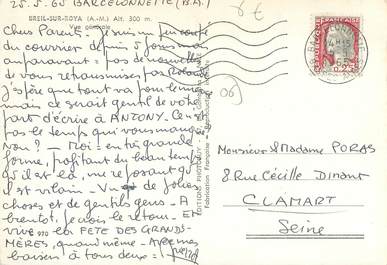 25.5.65 BARCELONNETTE (B.A.)
BREIL-SUR-ROYA (A.-M.) Alt. 300 m.
Vue générale
Chers Parents - Je suis un peu coupé
du courrier depuis 5 jours mais
auparavant = pas de nouvelles
de vous retransmises par Roland
J'espère que tout va pour le mieux
mais ce serait gentil de votre
part d'écrire à ANTONY. Ce n'est
pas le temps qui vous manque
Non? - Moi = en très grande
forme, profitant du beau temps
s'il est là, me reposant s'il
est vilain - Vu de jolies
choses et de gentils gens - A
bientôt, je vois le retour - ET
vive la FETE DES GRANDS-
MÈRES, quand même - Avec mes
baisers à tous deux
EDITIONS PHOTOGUY
Fabrication Française
6 €
06
BARCELONNETTE
FRANÇAISE
0,25
Monsieur & Madame PORAS
8 Rue Cécille Dinant
CLAMART
Seine